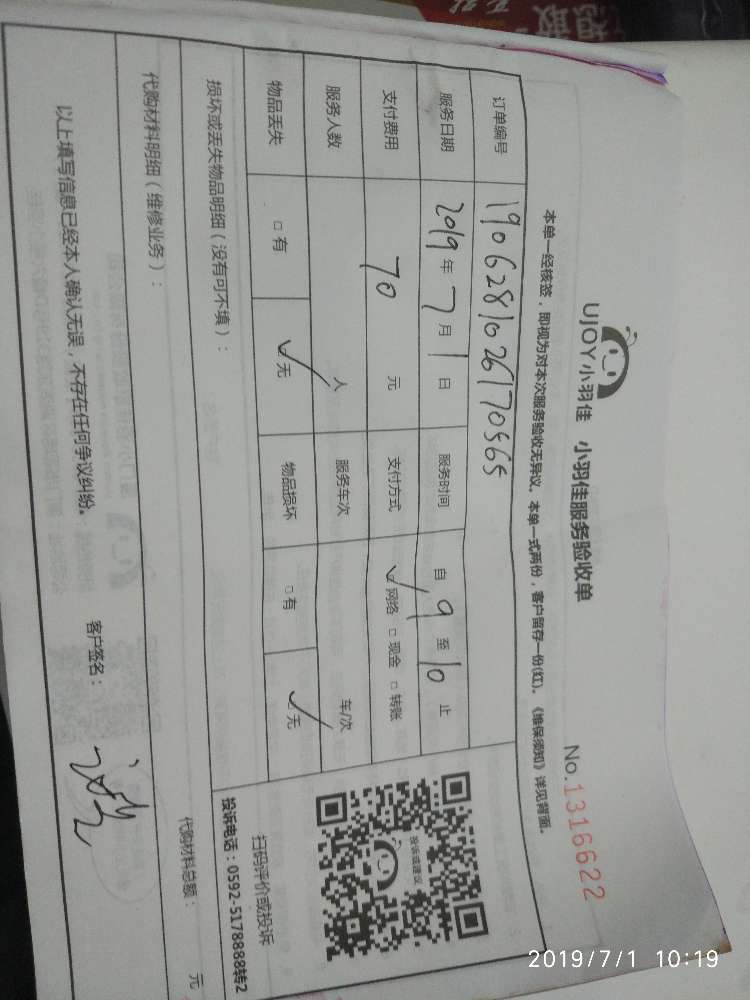 UJOY小羽佳 小羽佳服务验收单
No.1316622
本单一经核签，即视为对本次服务验收无异议。本单一式两份，客户留存一份(红)。《维保须知》详见背面。
订单编号 1906281026170565
服务日期 2019年7月1日 服务时间 自9至10止
支付费用 70元 支付方式 ✓网络 □现金 □转账
服务人数 人 服务车次 车/次
物品丢失 □有 ✓无 物品损坏 □有 ✓无
投诉或建议
扫码评价或投诉
投诉电话：0592-5178888转2
损坏或丢失物品明细（没有可不填）：
代购材料明细（维修业务）：
代购材料总额： 元
以上填写信息已经本人确认无误，不存在任何争议纠纷。 客户签名：
2019/7/1 10:19